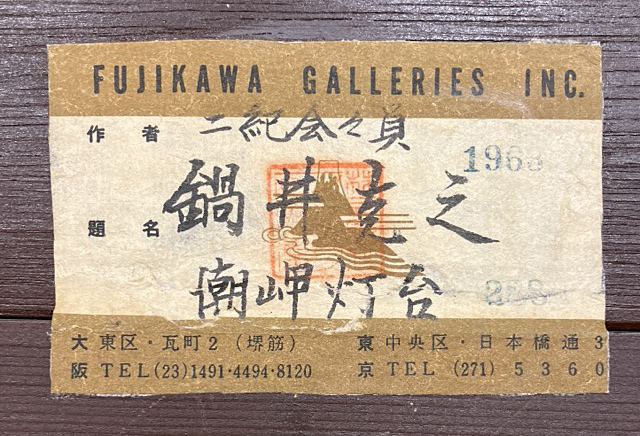 FUJIKAWA GALLERIES INC.
作者 二紀会々員
196
鍋井克之
題名
潮岬灯台
大阪 東区・瓦町2（堺筋）
TEL(23)1491・4494・8120
東京 中央区・日本橋通3
TEL (271) 5360